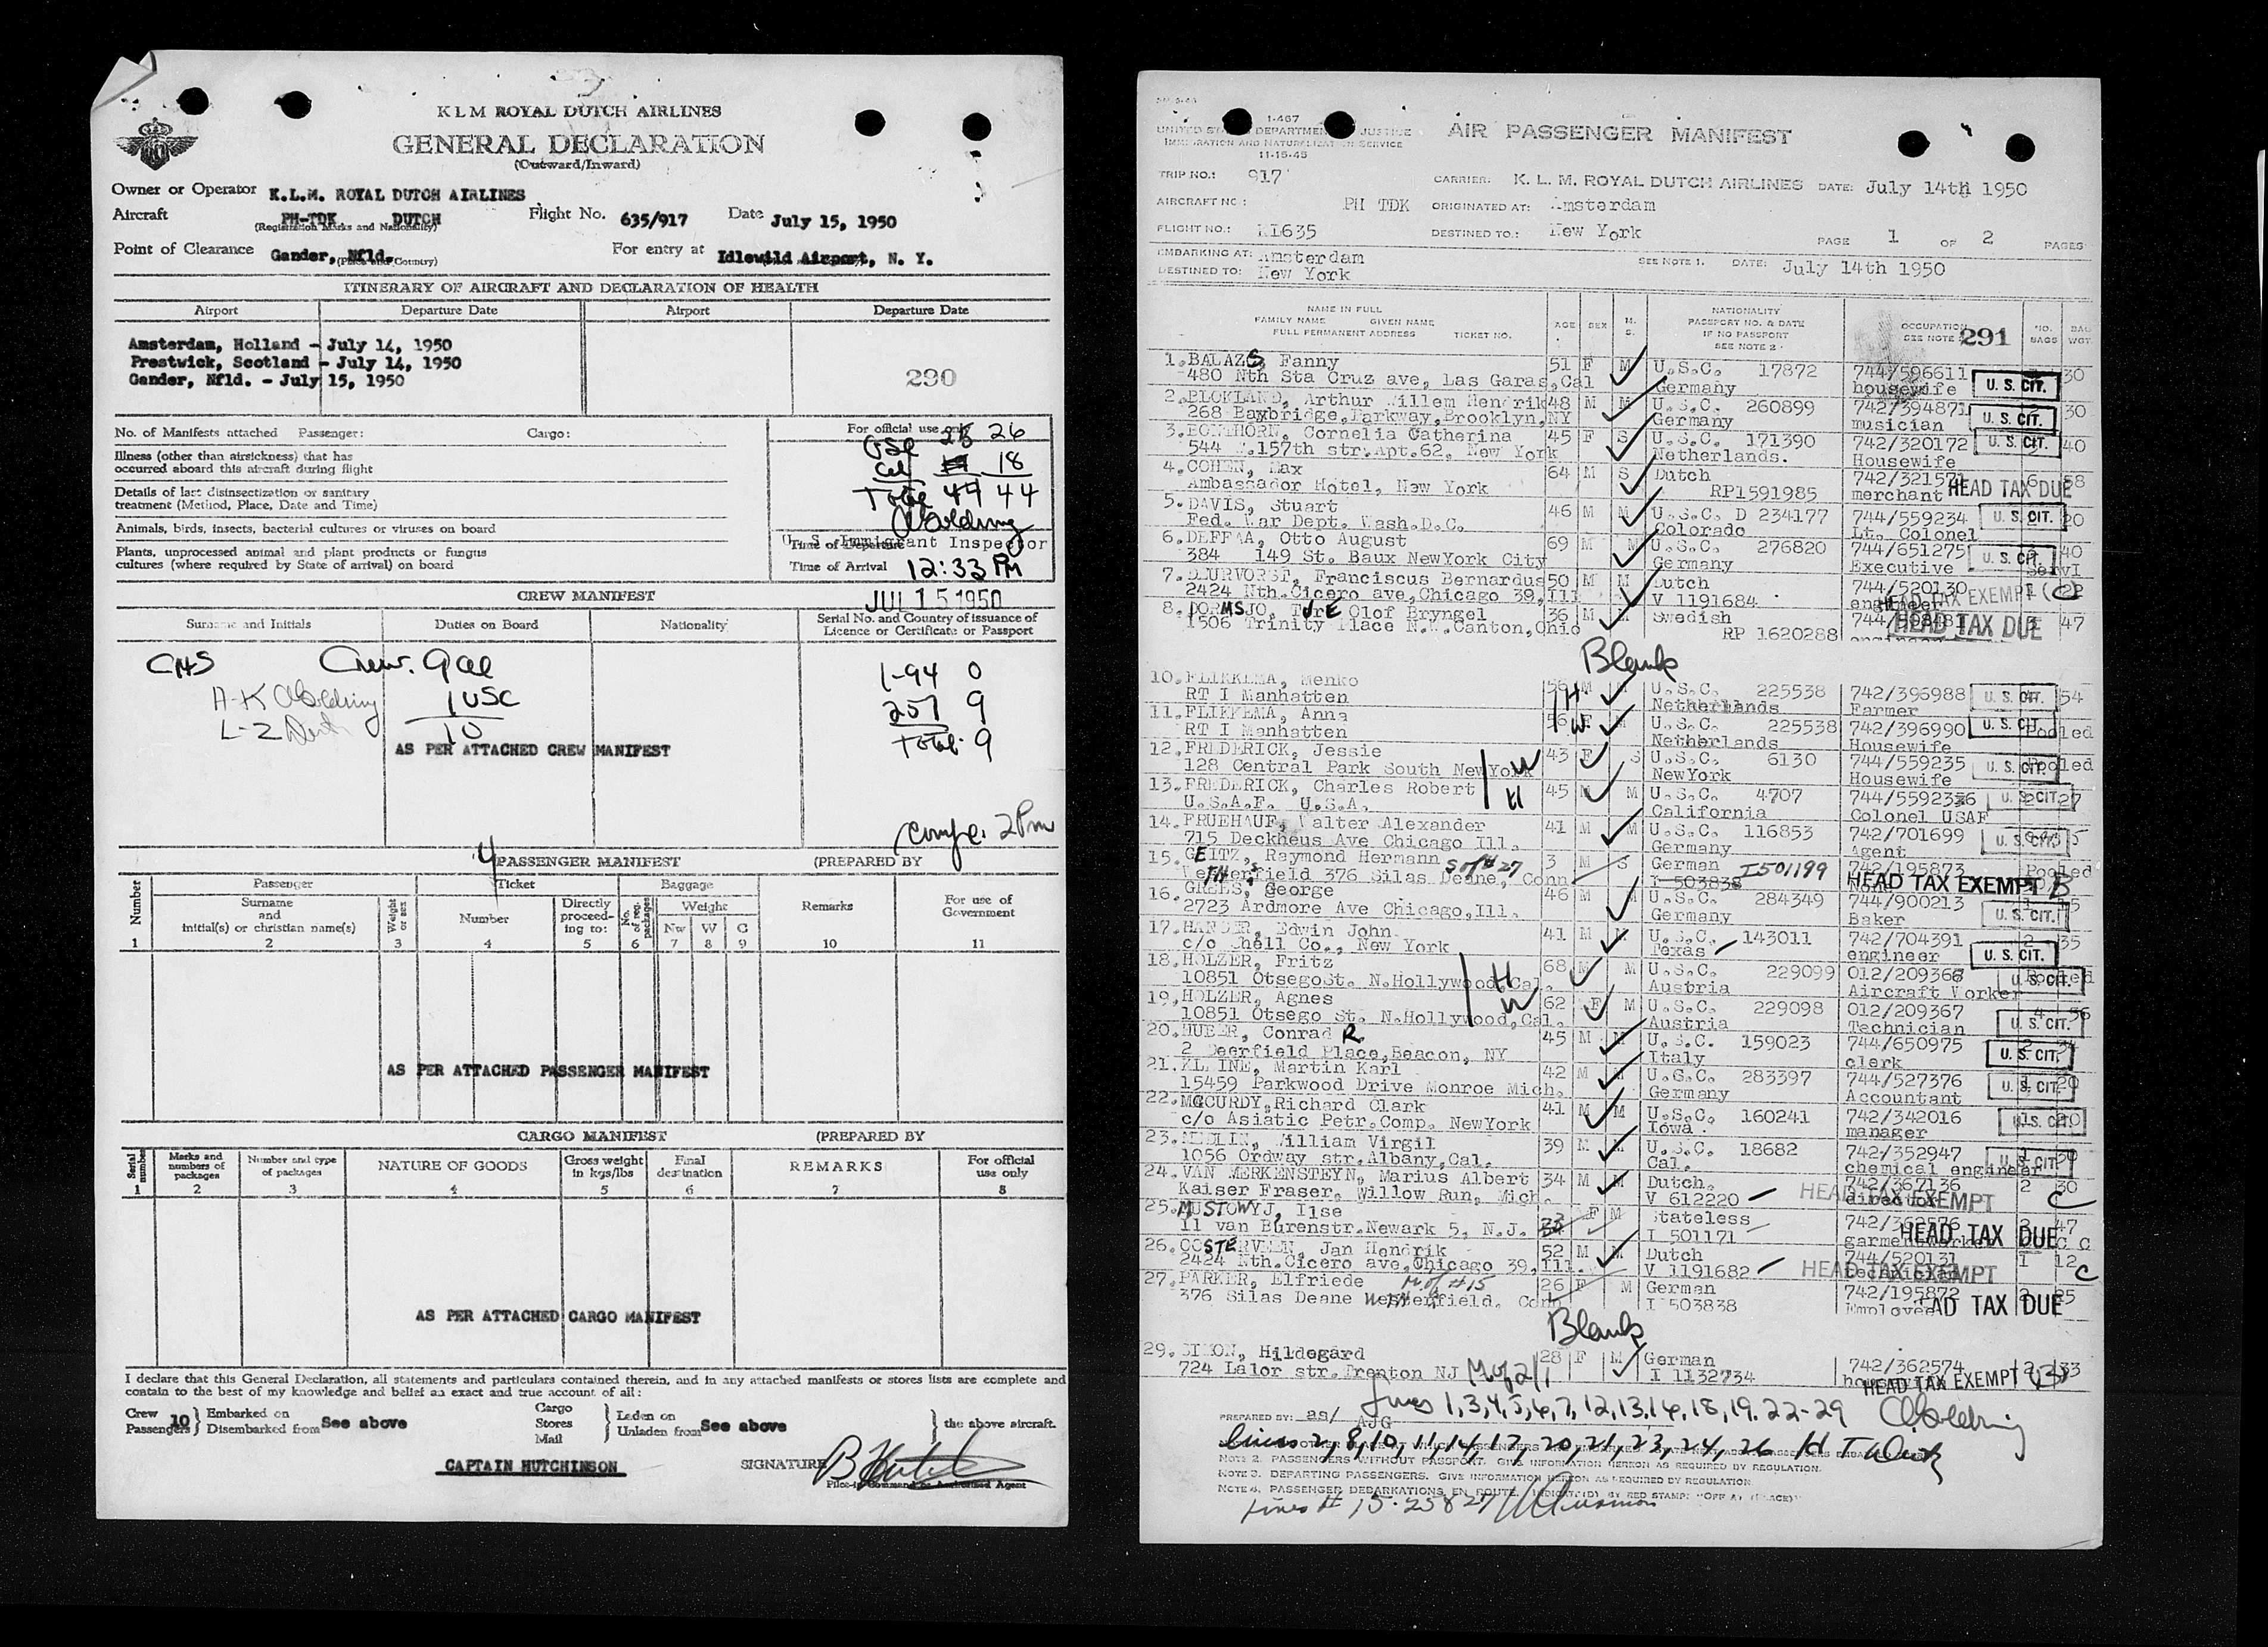 K L M ROYAL DUTCH AIRLINES
GENERAL DECLARATION
(Outward/Inward)
Owner or Operator K.L.M. ROYAL DUTCH AIRLINES
Aircraft PH-TDK DUTCH Flight No. 635/917 Date July 15, 1950
(Registration Marks and Nationality)
Point of Clearance Gander, Nfld. For entry at Idlewild Airport, N. Y.
(Place and Country)
ITINERARY OF AIRCRAFT AND DECLARATION OF HEALTH
Airport Departure Date Airport Departure Date
Amsterdam, Holland - July 14, 1950
Prestwick, Scotland - July 14, 1950
Gander, Nfld. - July 15, 1950
290
No. of Manifests attached Passenger: Cargo:
Illness (other than airsickness) that has
occurred aboard this aircraft during flight
Details of last disinsectization or sanitary
treatment (Method, Place, Date and Time)
Animals, birds, insects, bacterial cultures or viruses on board
Plants, unprocessed animal and plant products or fungus
cultures (where required by State of arrival) on board
For official use only
USC 26
18
Total 44 44
U. S. Immigrant Inspector
Time of Departure
Time of Arrival 12:33 PM
JUL 15 1950
CREW MANIFEST
Surname and Initials Duties on Board Nationality Serial No. and Country of issuance of
Licence or Certificate or Passport
Crew. 9 al
1 USC
10
1-94 0
257 9
Total 9
AS PER ATTACHED CREW MANIFEST
2 Pm
4
PASSENGER MANIFEST (PREPARED BY
Number Passenger Ticket Baggage Remarks For use of
Government
Surname
and
initial(s) or christian name(s)
Weight or sex Number Directly
proceed-
ing to: No. of reg. packages Weight
Nw W C
1 2 3 4 5 6 7 8 9 10 11
AS PER ATTACHED PASSENGER MANIFEST
CARGO MANIFEST (PREPARED BY
Serial number Marks and
numbers of
packages Number and type
of packages NATURE OF GOODS Gross weight
in kgs/lbs Final
destination REMARKS For official
use only
1 2 3 4 5 6 7 8
AS PER ATTACHED CARGO MANIFEST
I declare that this General Declaration, all statements and particulars contained therein, and in any attached manifests or stores lists are complete and
contain to the best of my knowledge and belief an exact and true account of all:
Crew 10 Embarked on See above Cargo Laden on See above the above aircraft.
Passengers Disembarked from Stores Unladen from
Mail
CAPTAIN HUTCHINSON SIGNATURE
Pilot-in Command or Authorised Agent
1-467
UNITED STATES DEPARTMENT OF JUSTICE
IMMIGRATION AND NATURALIZATION SERVICE
11-15-45
AIR PASSENGER MANIFEST
TRIP NO.: 917 CARRIER: K. L. M. ROYAL DUTCH AIRLINES DATE: July 14th 1950
AIRCRAFT NO: PH TDK ORIGINATED AT: Amsterdam
FLIGHT NO.: KL635 DESTINED TO.: New York PAGE 1 OF 2 PAGES
EMBARKING AT: Amsterdam SEE NOTE 1. DATE: July 14th 1950
DESTINED TO: New York
NAME IN FULL
FAMILY NAME GIVEN NAME
FULL PERMANENT ADDRESS TICKET NO.
AGE SEX M. S. NATIONALITY
PASSPORT NO. & DATE
IF NO PASSPORT
SEE NOTE 2 OCCUPATION
SEE NOTE NO. BAGS BAG WGT.
291
1. BALAZS, Fanny 51 F M U.S.C. 17872 744/596611 30
480 Nth Sta Cruz ave, Las Garas, Cal Germany housewife U. S. CIT.
2. BLOKLAND, Arthur Willem Hendrik 48 M M U.S.C. 260899 742/394871 30
268 Baybridge, Parkway, Brooklyn, NY Germany musician U. S. CIT.
3. BONTHORN, Cornelia Catherina 45 F S U.S.C. 171390 742/320172 U. S. CIT. 40
544 W.157th str.Apt.62, New York Netherlands. Housewife
4. COHEN, Max 64 M S Dutch 742/321571 6 58
Ambassador Hotel, New York RP1591985 merchant HEAD TAX DUE
5. DAVIS, Stuart 46 M M U.S.C. D 234177 744/559234 U. S. CIT. 20
Fed. War Dept. Wash.D.C. Colorado Lt. Colonel
6. DEFFAA, Otto August 69 M M U.S.C. 276820 744/651275 40
384 149 St. Baux NewYork City Germany Executive U. S. CIT.
7. DUURVORST, Franciscus Bernardus 50 M M Dutch 744/520130 1 22
2424 Nth.Cicero ave, Chicago 39, Ill V 1191684 engineer HEAD TAX EXEMPT (C)
8. DORMSJO, TURE Olof Bryngel 36 M M Swedish 47
1506 Trinity Place N.W.Canton, Ohio RP 1620288 HEAD TAX DUE
Blank
10. FLIKKEMA, Menko 56 M M U.S.C. 225538 742/396988 U. S. CIT. 54
RT I Manhatten H Netherlands Farmer
11. FLIKKEMA, Anna 56 F M U.S.C. 225538 742/396990 U. S. CIT. Pooled
RT I Manhatten W Netherlands Housewife
12. FREDERICK, Jessie 43 F S U.S.C. 6130 744/559235 U. S. CIT. Pooled
128 Central Park South NewYork W NewYork Housewife
13. FREDERICK, Charles Robert 45 M M U.S.C. 4707 744/559236 U. S. CIT. 27
U.S.A.F. U.S.A. H California Colonel USAF
14. FRUEHAUF, Walter Alexander 41 M M U.S.C. 116853 742/701699 U. S. CIT.
715 Deckheus Ave Chicago Ill. Germany Agent
15. GEITZ, Raymond Hermann S of #27 3 M S German I501199 742/195873 Pooled
Wethersfield 376 Silas Deane, Conn I 503838 HEAD TAX EXEMPT B
16. GREES, George 46 M M U.S.C. 284349 744/900213
2723 Ardmore Ave Chicago, Ill. Germany Baker U. S. CIT.
17. Edwin John 41 M M U.S.C. 143011 742/704391 2 35
c/o Shell Co., New York Texas engineer U. S. CIT.
18. HOLZER, Fritz 68 M M U.S.C. 229099 012/209368 Pooled
10851 OtsegoSt. N.Hollywood, Cal. H Austria Aircraft Worker U. S. CIT.
19. HOLZER, Agnes 62 F M U.S.C. 229098 012/209367 4 56
10851 Otsego St. N.Hollywood, Cal. W Austria Technician U. S. CIT.
20. HUBER, Conrad R. 45 M M U.S.C. 159023 744/650975
2 Deerfield Place, Beacon, NY Italy clerk U. S. CIT.
21. KLEINE, Martin Karl 42 M M U.S.C. 283397 744/527376 20
15459 Parkwood Drive Monroe Mich. Germany Accountant U. S. CIT.
22. MCCURDY, Richard Clark 41 M M U.S.C. 160241 742/342016
c/o Asiatic Petr.Comp. NewYork Iowa. manager U. S. CIT.
23. MEDLIN, William Virgil 39 M M U.S.C. 18682 742/352947 30
1056 Ordway str.Albany, Cal. Cal. chemical engineer U. S. CIT.
24. VAN MERKENSTEYN, Marius Albert 34 M M Dutch. 742/367136 2 30
Kaiser Fraser, Willow Run, Mich. V 612220 director HEAD TAX EXEMPT C
25. MUSTOWYJ, Ilse F M Stateless 742/362576 2 47
11 van Burenstr.Newark 5, N.J. I 501171 garmentworker HEAD TAX DUE
26. OOSTERVEEN, Jan Hendrik 52 M M Dutch 744/520131 1 12
2424 Nth.Cicero ave, Chicago 39, Ill. V 1191682 technician HEAD TAX EXEMPT C
27. PARKER, Elfriede M. of #15 26 F M German 742/195872 25
376 Silas Deane Wethersfield. Conn I 503838 Employee HEAD TAX DUE
Blank
29. SIMON, Hildegard 28 F M German 742/362574 2 33
724 Lalor str. Trenton NJ M of 2/1 I 1132734 housewife HEAD TAX EXEMPT (B)
lines 1,3,4,5,6,7,12,13,16,18,19.22-29
PREPARED BY: as/ AJG
lines 2,8,10,11,14,17,20,21,23,24,26
NOTE 2. PASSENGERS WITHOUT PASSPORT. GIVE INFORMATION HEREON AS REQUIRED BY REGULATION.
NOTE 3. DEPARTING PASSENGERS. GIVE INFORMATION HEREON AS REQUIRED BY REGULATION
NOTE 4. PASSENGER DEBARKATIONS EN ROUTE. INDICATE(D) BY RED STAMP: "OFF AT (PLACE)"
Lines # 15-25&27